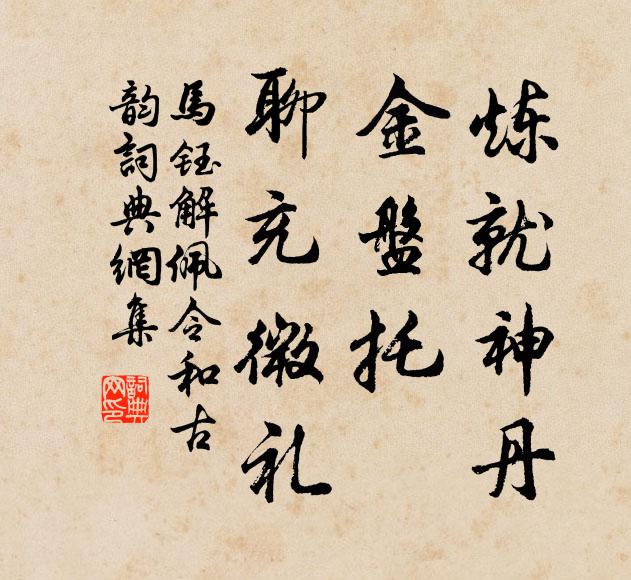 炼就神丹
金盤托
聊充微礼
馬鈺解佩令和古
韵詞典網集
詞典网印